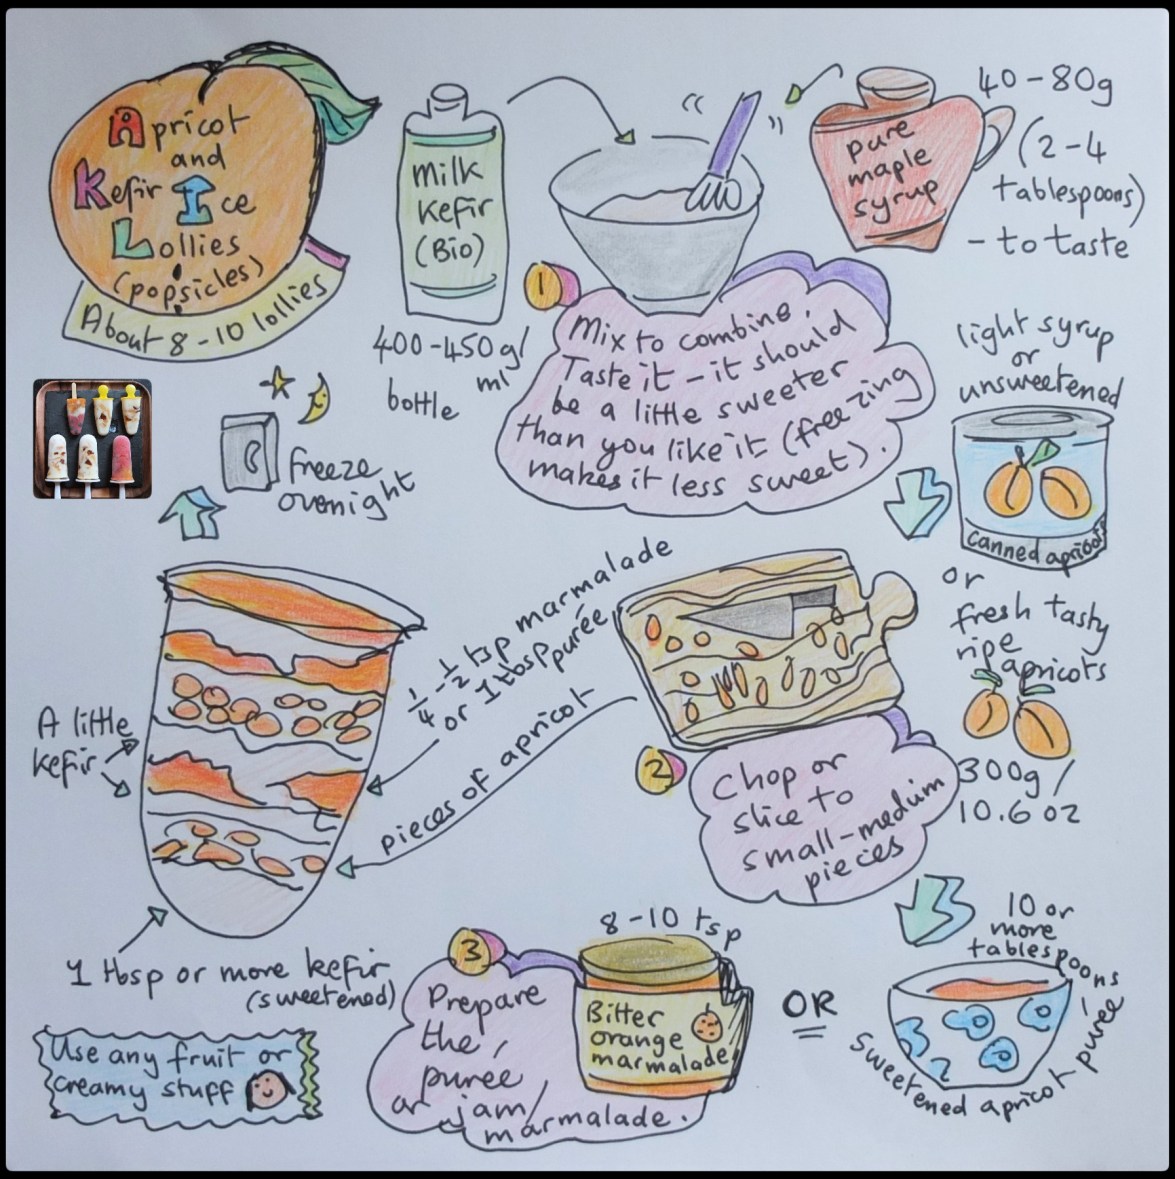 Apricot
and
Kefir Ice
Lollies
(popsicles)
About 8-10 lollies
Milk
Kefir
(Bio)
400-450g/
ml
bottle
pure
maple
syrup
40-80g
(2-4
tablespoons)
- to taste
1
Mix to combine.
Taste it - it should
be a little sweeter
than you like it (freezing
makes it less sweet).
light syrup
or
unsweetened
canned apricots
or
fresh tasty
ripe
apricots
300g/
10.6oz
2
Chop or
slice to
small-medium
pieces
10 or
more
tablespoons
sweetened apricot purée
OR
8-10 tsp
Bitter
orange
marmalade
3
Prepare
the
purée
or jam/
marmalade.
1/4-1/2 tsp marmalade
or 1 tbsp purée
pieces of apricot
A little
kefir
1 tbsp or more kefir
(sweetened)
freeze
overnight
Use any fruit or
creamy stuff